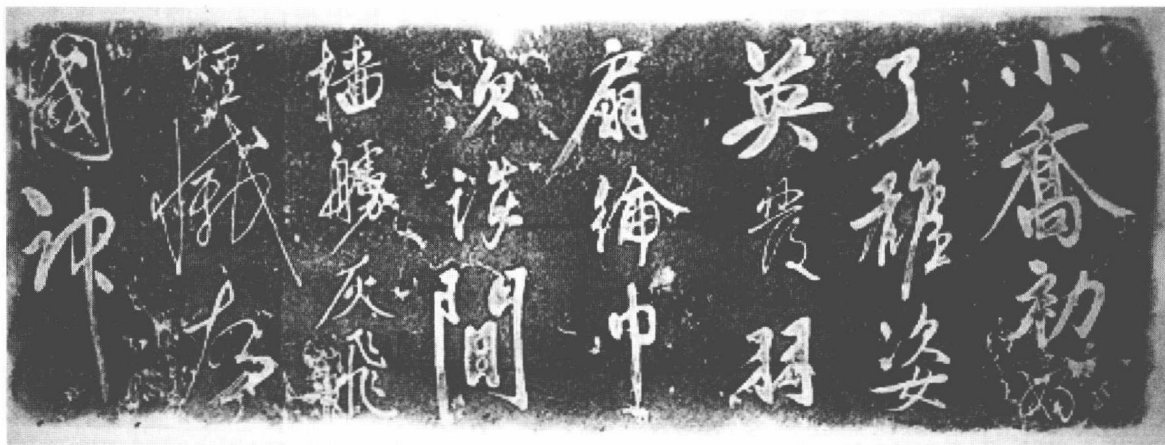 小喬初嫁
了雄姿
英發羽
扇綸巾
笑談間
檣艣灰飛
煙滅故
國神